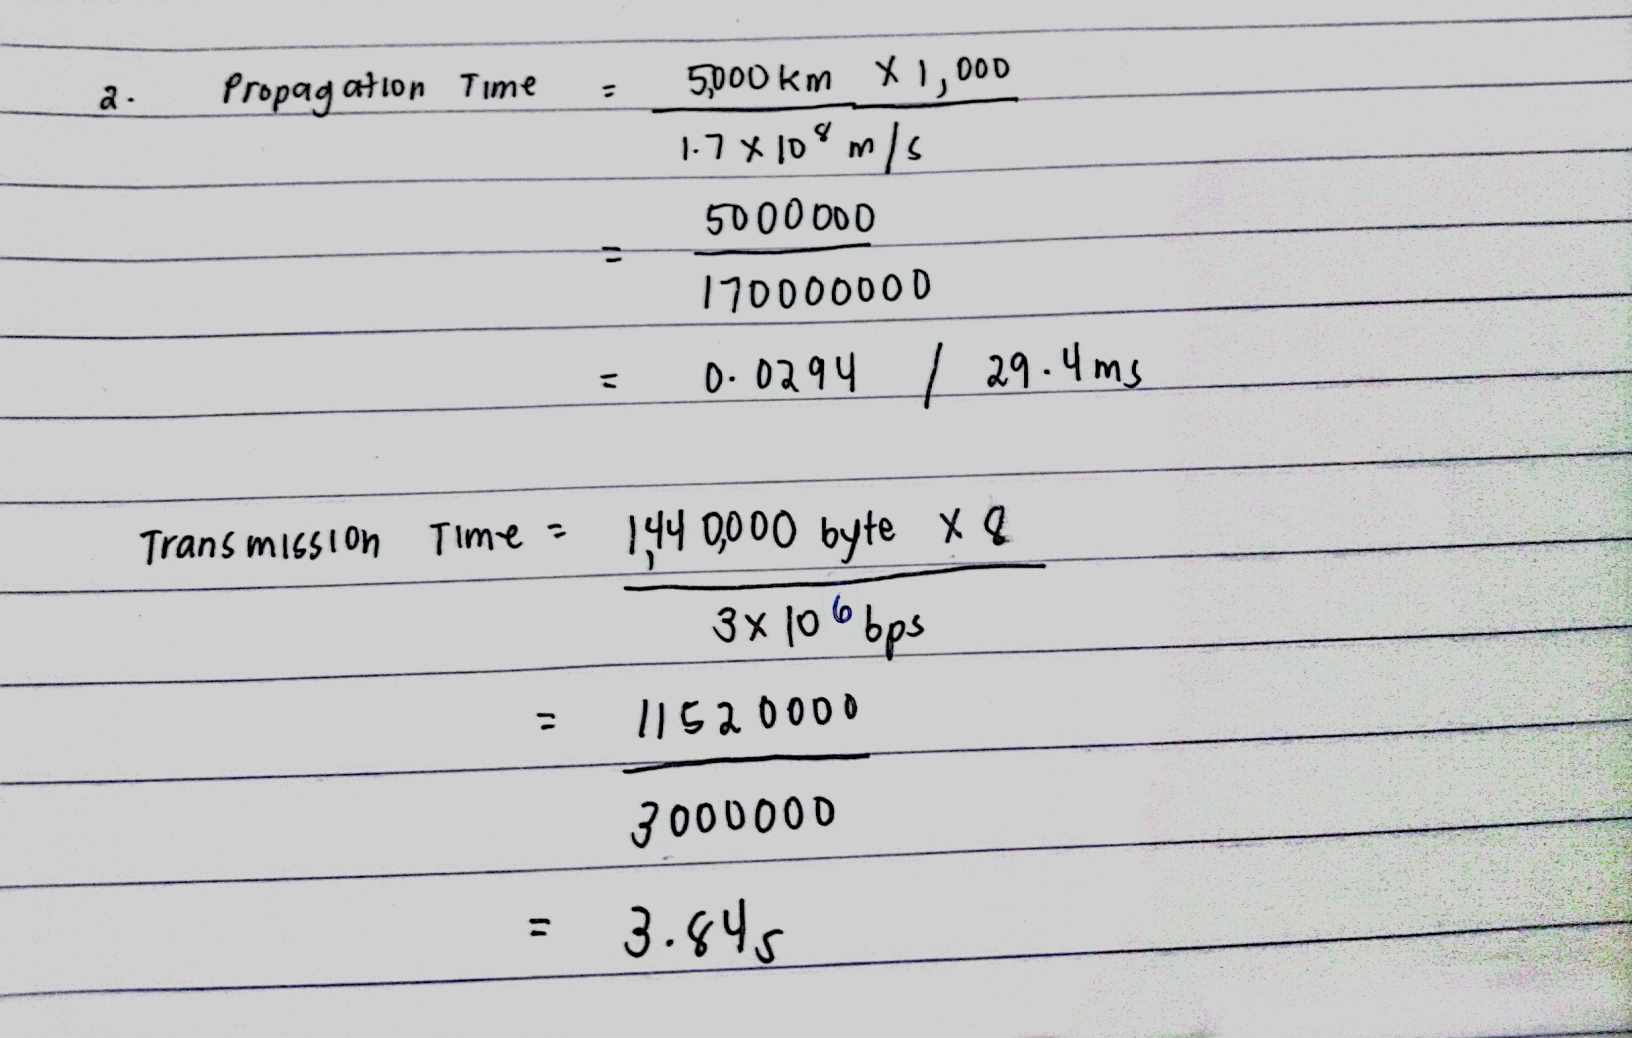 2. Propagation Time = 5,000 km x 1,000
1.7 x 10⁸ m/s
= 5000000
170000000
= 0.0294 / 29.4 ms
Transmission Time = 1,440,000 byte x 8
3 x 10⁶ bps
= 11520000
3000000
= 3.84s